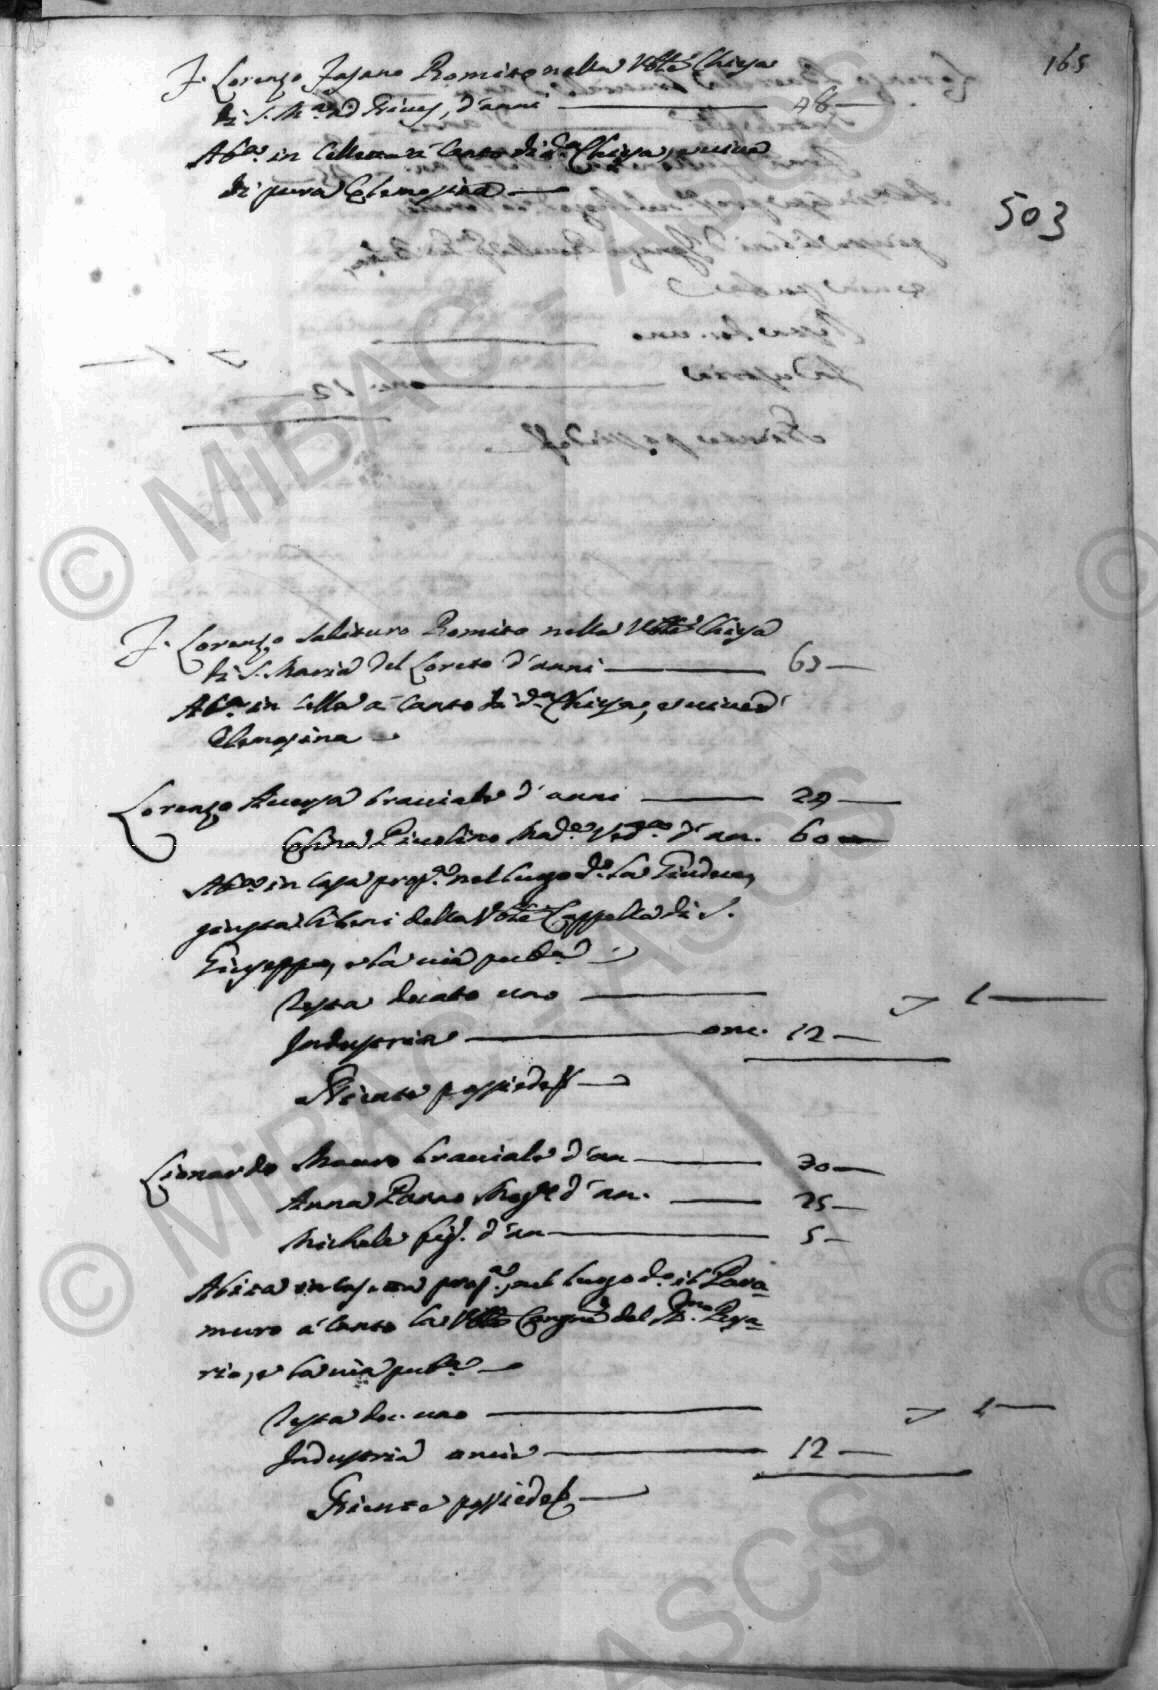 165
F. Lorenzo Fasano Romito nella Vble Chiesa
di S. Ma. ad Nives, d'anni 48
Abta. in Cella a canto di da. Chiesa, e vive
di pura Elemosina
503
F. Lorenzo Salituro Romito nella Vble Chiesa
di S. Maria del Loreto d'anni 63
Abta. in Cella a canto di da. Chiesa, e vive d'
Elemosina
Lorenzo Aversa bracciale d'anni 29
Piccolino Made. Veda. d'an. 60
Abno. in casa propa. nel luogo do. La Giudeca,
giusta li beni della Vble Cappella di S.
Giuseppe, e la via puba.
Testa ducato uno 1
Industria onc. 12
Niente possiede
Lionardo Mauro bracciale d'an 30
Anna Moge d'an. 25
Michele fig. d'an 5
Abita in casa propa., nel luogo do. il Para-
muro a canto la Vble Congne. del SSmo. Rosa-
rio, e la via puba.
Testa duc. uno 1
Industria oncie 12
Niente possiede
© MiBAC - ASCS
© MiBAC - ASCS
ASCS